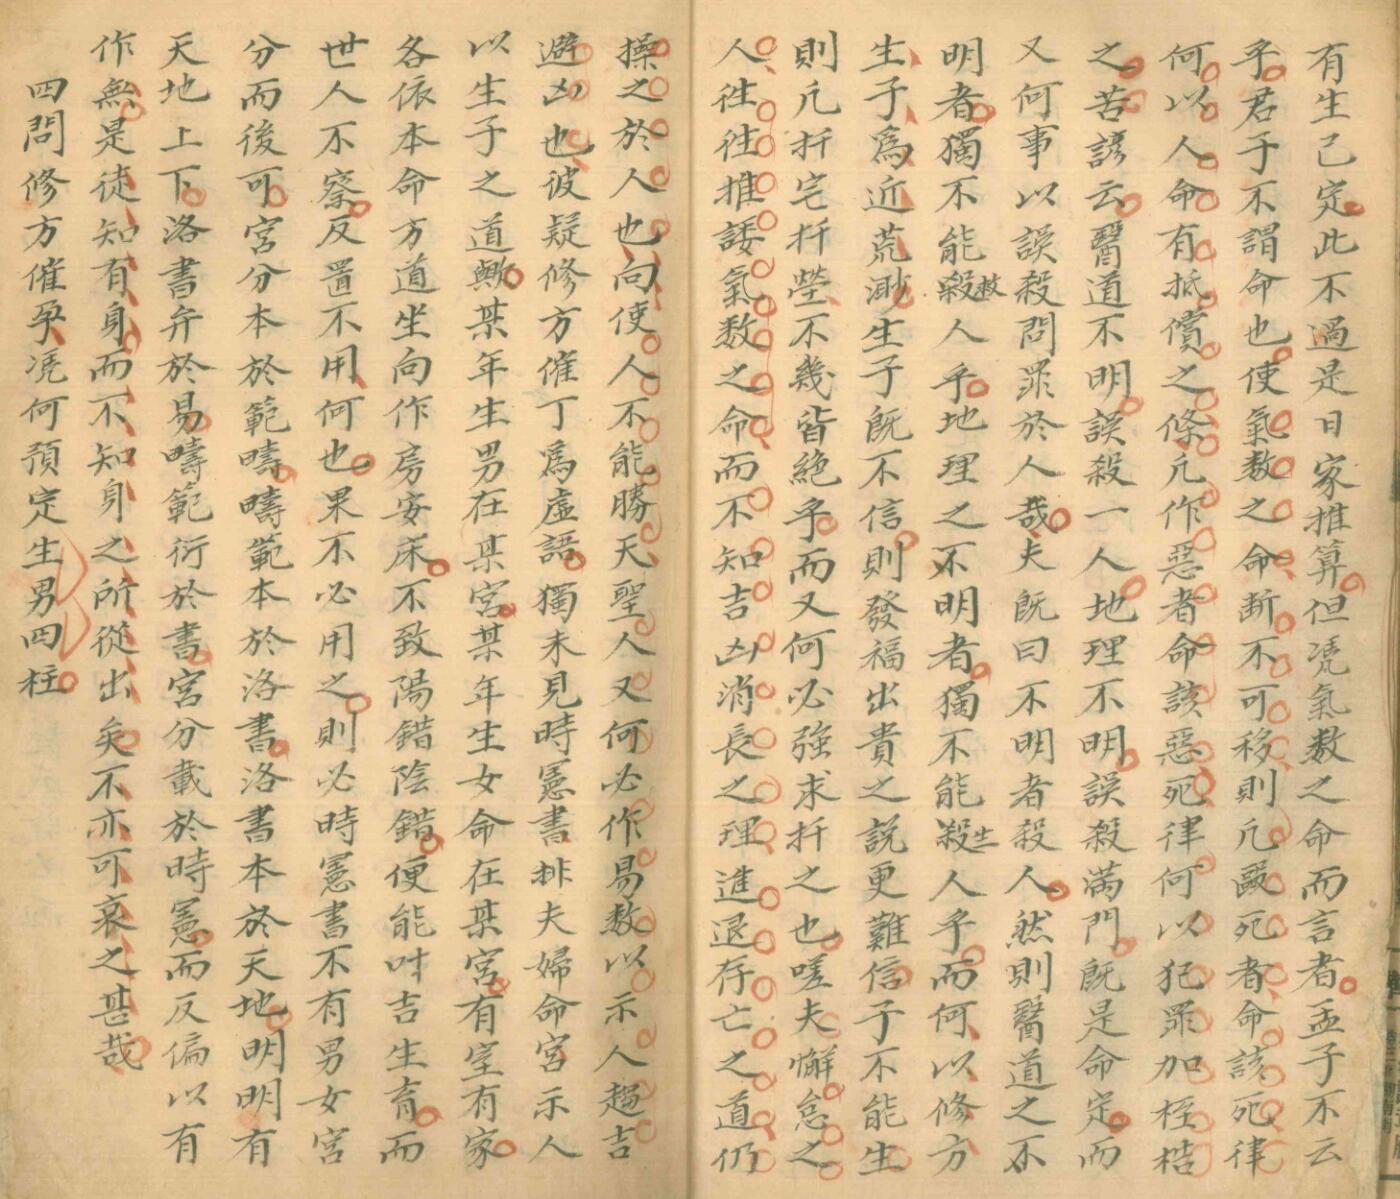 有生已定此不過是日家推算但凴氣数之命而言者孟子不云
乎君子不謂命也使氣数之命断不可移則凢毆死者命該死律
何以人命有抵償之條凢作惡者命該惡死律何以犯罪加桎梏
之苦諺云醫道不明誤殺一人地理不明誤殺滿門既是命定而
又何事以誤殺問罪於人哉夫既曰不明者殺人然則醫道之不
明者獨不能殺救人乎地理之不明者獨不能殺生人乎而何以修方
生子爲近荒渺生子既不信則發福出貴之説更難信子不能生
則凢扦宅扦塋不幾皆絶乎而又何必強求扦之也嗟夫懈怠之
人徃徃推諉氣数之命而不知吉凶消長之理進退存亡之道仍
操之於人也向使人不能勝天聖人又何必作易数以示人趨吉
避凶也彼疑修方催丁爲虛語獨未見時憲書排夫婦命宮示人
以生子之道歟某年生男在某宮某年生女命在某宮有室有家
各依本命方道坐向作房安床不致陽錯陰錯便能叶吉生育而
世人不察反置不用何也果不必用之則必時憲書不有男女宮
分而後可宮分本於範疇疇範本於洛書洛書本於天地明明有
天地上下洛書弁於易疇範衍於書宮分載於時憲而反偏以有
作無是徒知有身而不知身之所從出矣不亦可哀之甚哉
四問修方催孕凴何預定生男四柱